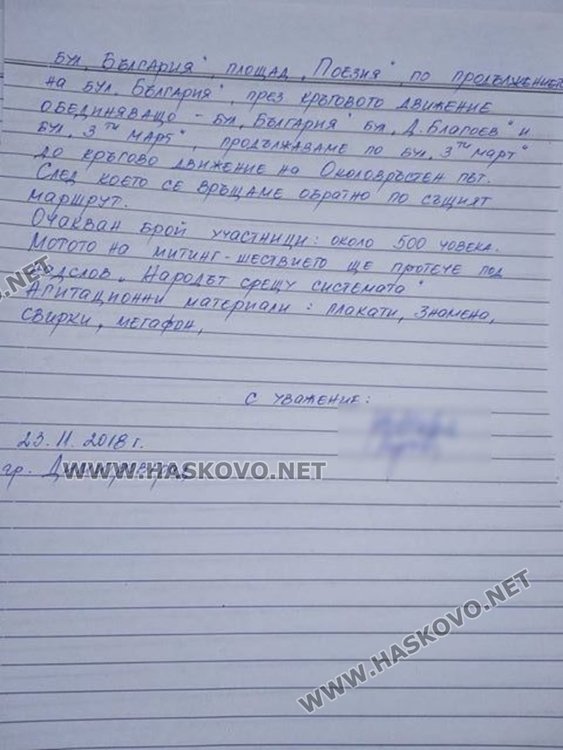 бул. „България", площад „Поезия", по продължението
на бул. „България", през кръговото движение
обединяващо - бул. „България" бул. „Д. Благоев" и
бул. „3ти март", продължаваме по бул. „3ти март"
до кръгово движение на Околовръстен път.
След което се връщаме обратно по същият
маршрут.
Очакван брой участници: около 500 човека.
Мотото на митинг-шествието ще протече под
надслов „Народът срещу системата"
Агитационни материали: плакати, знамена,
свирки, мегафон,
С уважение:
23.11.2018 г.
гр. Димитровград
WWW.HASKOVO.NET
WWW.HASKOVO.NET